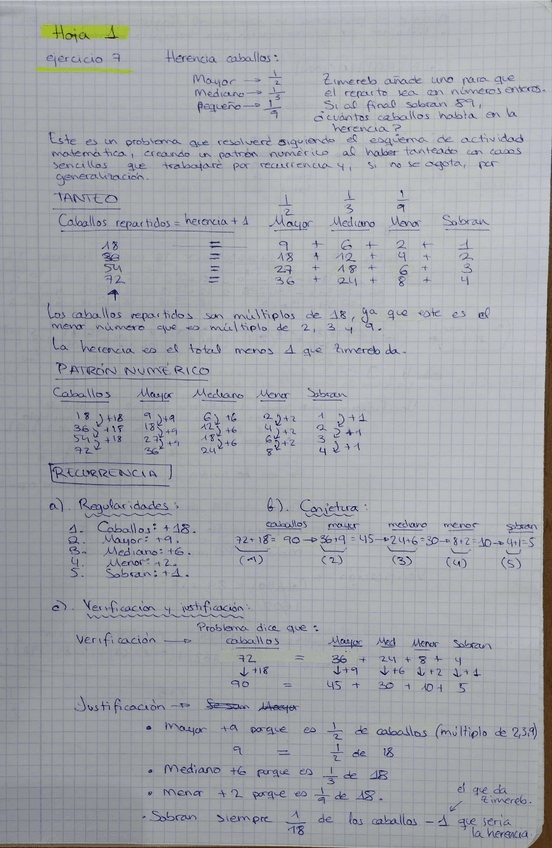 Hoja 1
ejercicio 7 Herencia caballos:
Mayor → 1/2 Zimereb añade uno para que
Mediano → 1/3 el reparto sea con números enteros.
Pequeño → 1/9 Si al final sobran 89,
¿cuántos caballos había en la
herencia?
Este es un problema que resolveré siguiendo el esquema de actividad
matemática, creando un patrón numérico al haber tanteado con casos
sencillos que trabajaré por recurrencia y, si no se agota, por
generalización.
TANTEO 1/2 1/3 1/9
Caballos repartidos = herencia + 1 Mayor Mediano Menor Sobran
18 = 9 + 6 + 2 + 1
36 = 18 + 12 + 4 + 2
54 = 27 + 18 + 6 + 3
72 = 36 + 24 + 8 + 4
↑
Los caballos repartidos son múltiplos de 18, ya que este es el
menor número que es múltiplo de 2, 3 y 9.
La herencia es el total menos 1 que Zimereb da.
PATRÓN NUMÉRICO
Caballos Mayor Mediano Menor Sobran
18 +18 9 +9 6 +6 2 +2 1 +1
36 +18 18 +9 12 +6 4 +2 2 +1
54 +18 27 +9 18 +6 6 +2 3 +1
72 36 24 8 4
RECURRENCIA
a). Regularidades: b). Conjetura:
caballos mayor mediano menor sobran
1.- Caballos: +18. 72+18= 90 → 36+9 = 45 → 24+6=30 → 8+2=10 → 4+1=5
2.- Mayor: +9. (1) (2) (3) (4) (5)
3.- Mediano: +6.
4.- Menor: +2.
5.- Sobran: +1.
c). Verificación y justificación:
Problema dice que:
Verificación → caballos Mayor Med Menor Sobran
72 = 36 + 24 + 8 + 4
↓+18 ↓+9 ↓+6 ↓+2 ↓+1
90 = 45 + 30 + 10 + 5
Justificación →
• Mayor +9 porque es 1/2 de caballos (múltiplo de 2,3,9)
9 = 1/2 de 18
• Mediano +6 porque es 1/3 de 18
• Menor +2 porque es 1/9 de 18.
el que da
Zimereb.
• Sobran siempre 1/18 de los caballos - 1 que sería
la herencia.